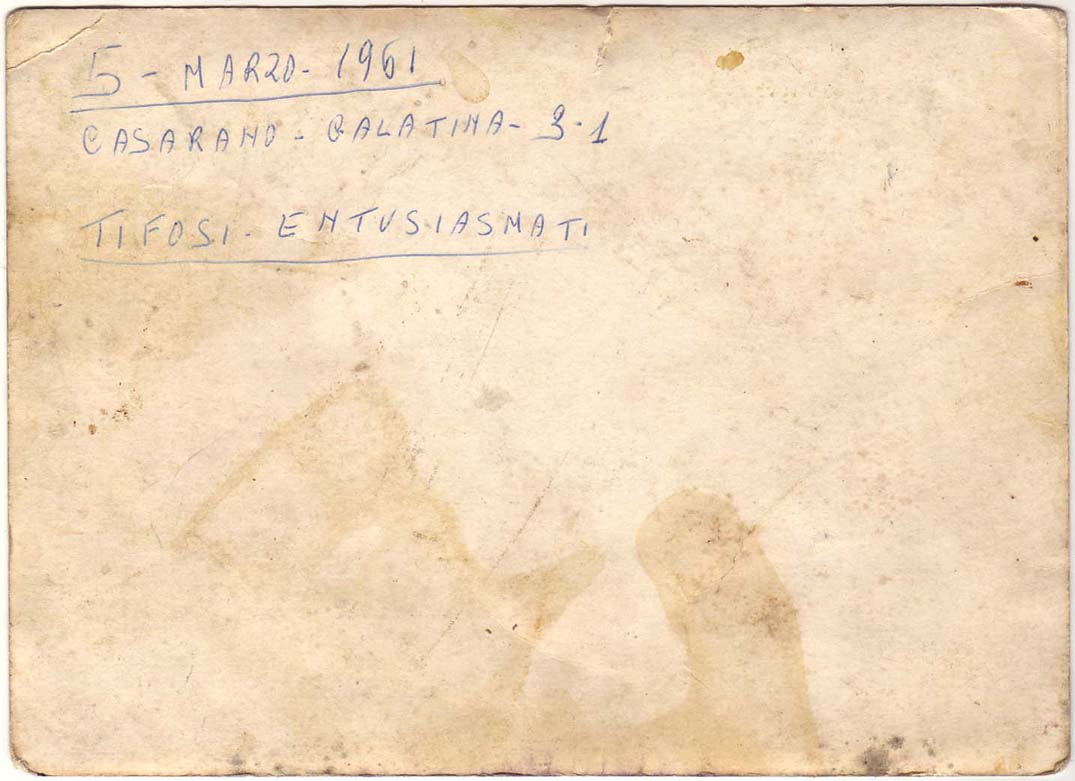 5 - MARZO - 1961
CASARANO - GALATINA - 3 - 1
TIFOSI - ENTUSIASMATI